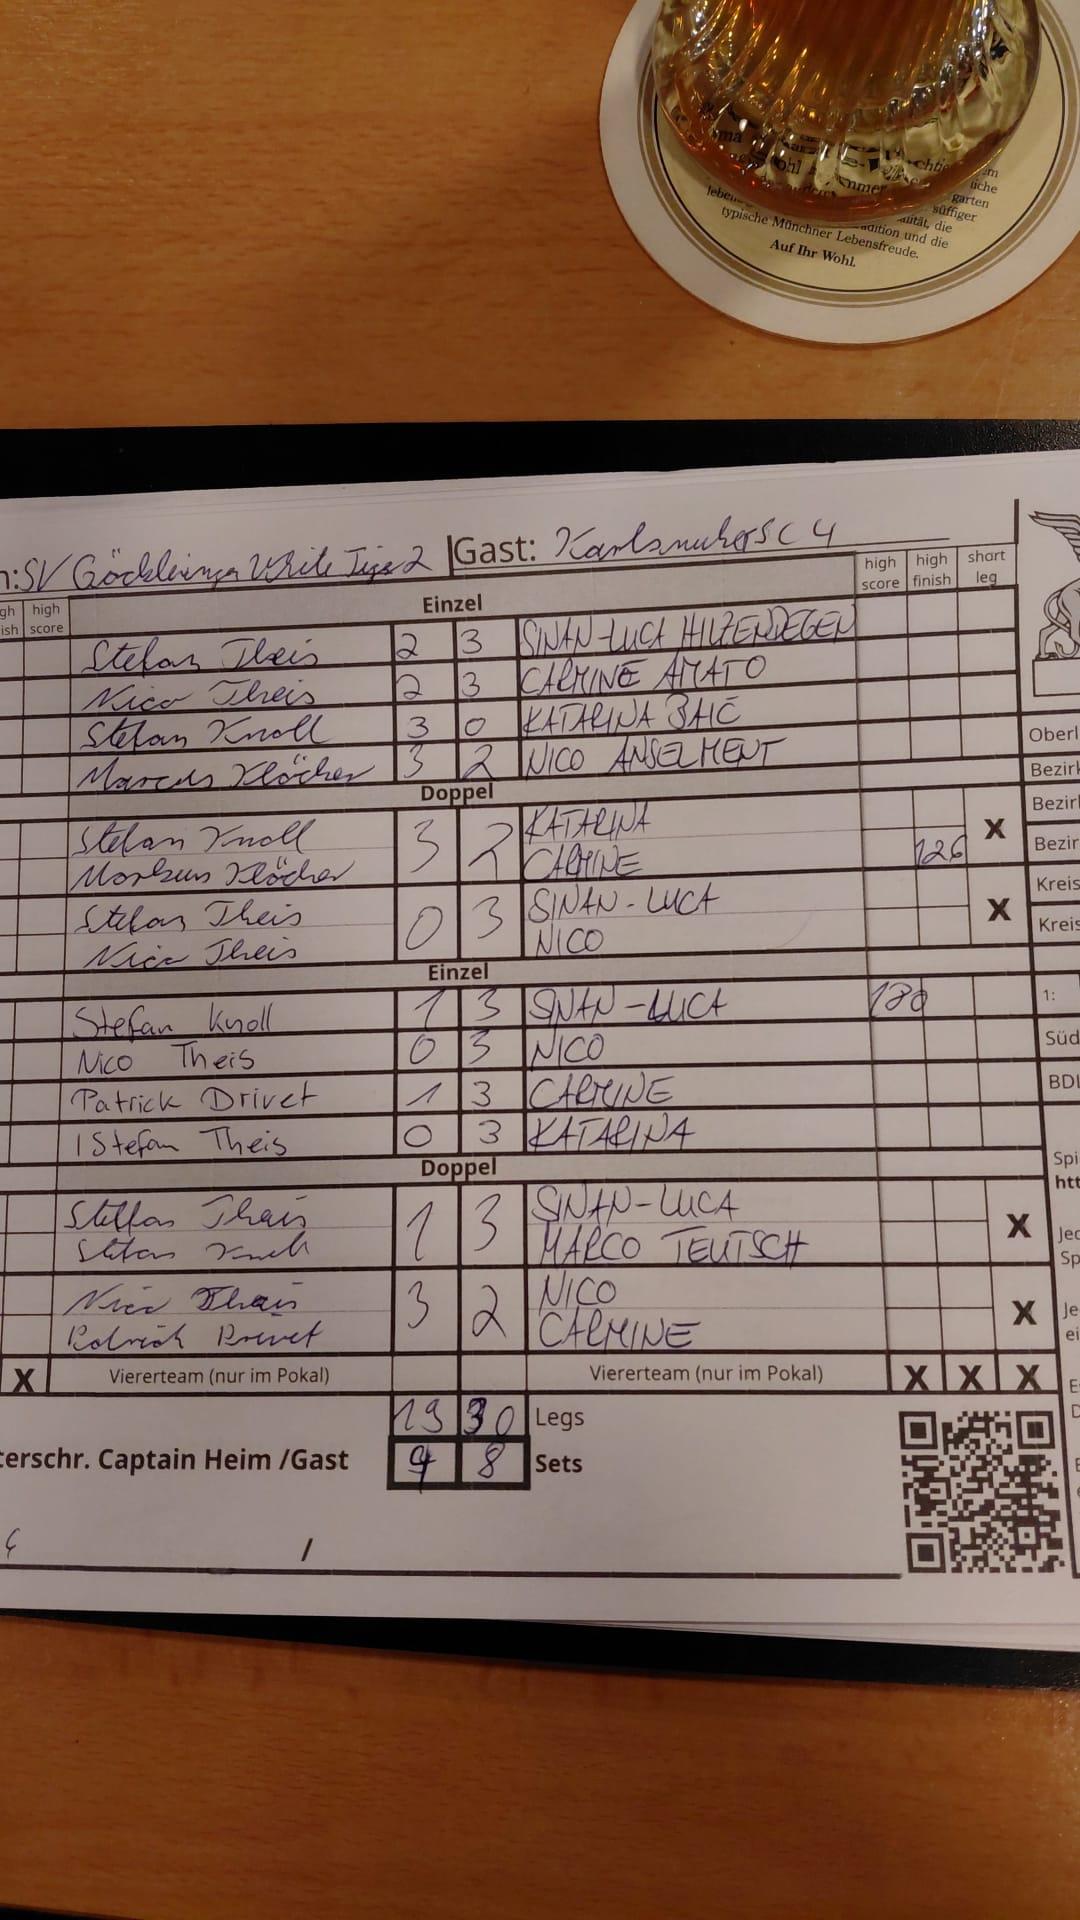 lebens
garten
süffiger
die
typische Münchner Lebensfreude.
dition und die
Auf Ihr Wohl.
n:SV Göcklingen White Tiger 2 Gast: Karlsruher SC 4
high score
Einzel
high score high finish short leg
Stefan Theis 2 3 SINAN-LUCA HILZENDEGEN
Nico Theis 2 3 CARMINE AMATO
Stefan Knoll 3 0 KATARINA BAIĆ
Marcus Klöcker 3 2 NICO ANSELMENT
Doppel
Stefan Knoll 3 2 KATARINA X
Markus Klöcker CARMINE 126
Stefan Theis 0 3 SINAN-LUCA X
Nico Theis NICO
Einzel
Stefan Knoll 1 3 SINAN-LUCA 180
Nico Theis 0 3 NICO
Patrick Drivet 1 3 CARMINE
Stefan Theis 0 3 KATARINA
Doppel
Steffan Theis 1 3 SINAN-LUCA X
Stefan Knoll MARCO TEUTSCH
Nico Theis 3 2 NICO X
Patrick Drivet CARMINE
X Viererteam (nur im Pokal) Viererteam (nur im Pokal) X X X
19 30 Legs
terschr. Captain Heim /Gast 4 8 Sets
/
Oberl
Bezirk
Bezirk
Bezir
Kreis
Kreis
1:
Süd
BDL
Spi
htt
Jed
Sp
Je
ei